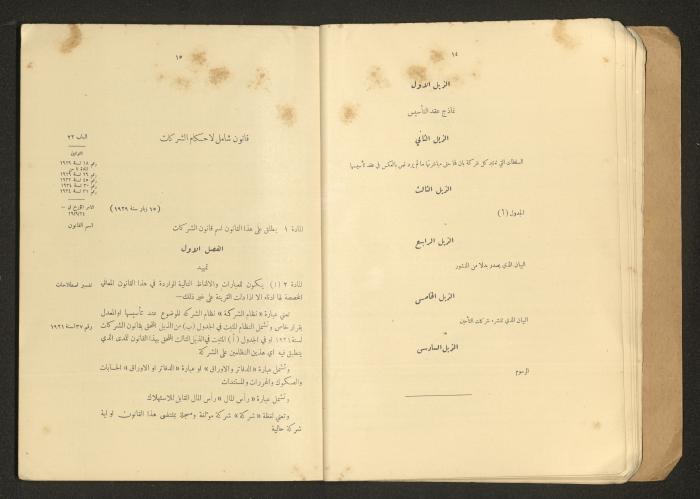 ١٤
الذيل الاول
نماذج عقد التأسيس
الذيل الثاني
السلطات التي تعتبر كل شركة بان لها حق مباشرتها ما لم يرد نص بالعكس في عقد تأسيسها
الذيل الثالث
الجدول (أ)
الذيل الرابع
البيان الذي يصدر بدلا من المنشور
الذيل الخامس
البيان الذي تنشره شركات التأمين
الذيل السادس
الرسوم
١٥
الباب ٢٢
قانون شامل لاحكام الشركات
القوانين
رقم ١٨ لسنة ١٩٢٩
رقم ٢٩ لسنة ١٩٢٩
رقم ٤٥ لسنة ١٩٣٢
رقم ٣٠ لسنة ١٩٣٤
رقم ٣١ لسنة ١٩٣٤
(١٥ ايار سنة ١٩٢٩)
اسم القانون
المادة ١ يطلق على هذا القانون اسم قانون الشركات
الفصل الاول
تمهيد
تفسير اصطلاحات
المادة ٢ (١) يكون للعبارات والالفاظ التالية الواردة في هذا القانون المعاني
المخصصة لها ادناه الا اذا دلت القرينة على غير ذلك—
تعني عبارة «نظام الشركة» نظام الشركة الموضوع عند تأسيسها او المعدل
رقم ٣٧ لسنة ١٩٢١
بقرار خاص وتشمل النظام المثبت في الجدول (ب) من الذيل الملحق بقانون الشركات
لسنة ١٩٢١ او في الجدول (أ) المثبت في الذيل الثالث الملحق بهذا القانون للمدى الذي
ينطبق فيه اي هذين النظامين على الشركة
وتشمل عبارة «الدفاتر والاوراق» او عبارة «الدفاتر او الاوراق» الحسابات
والصكوك والمحررات والمستندات
وتشمل عبارة «رأس المال» رأس المال القابل للاستهلاك
وتعني لفظة «شركة» شركة مؤلفة ومسجلة بمقتضى هذا القانون او اية
شركة حالية